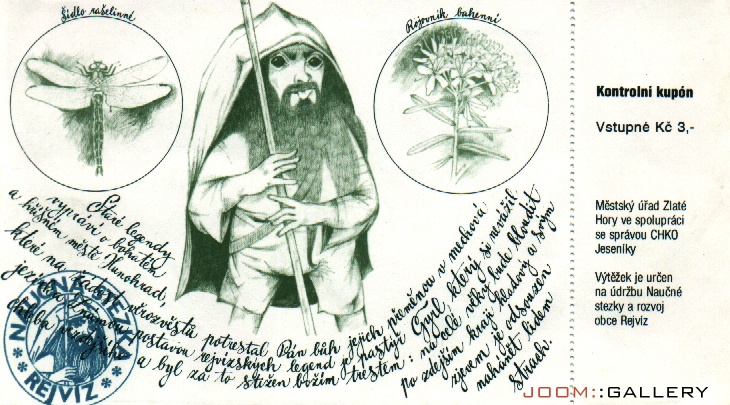 Šídlo rašelinné
Rojovník bahenní
Staré legendy
vypráví o bohatém
a hříšném městě Hunohrad,
které na žádost věrozvěstů potrestal Pán bůh jejich přeměnou v mechová
Smutnou postavou rejvízských legend je pastýř Gyll, který si
a byl za to stižen božím trestem: na celé věky bude bloudit
po zdejším kraji hladový a svým
zjevem je odsouzen
nahánět lidem
strach.
NAUČNÁ STEZKA
REJVÍZ
Kontrolní kupón
Vstupné Kč 3,-
Městský úřad Zlaté
Hory ve spolupráci
se správou CHKO
Jeseníky
Výtěžek je určen
na údržbu Naučné
stezky a rozvoj
obce Rejvíz
JOOM::GALLERY